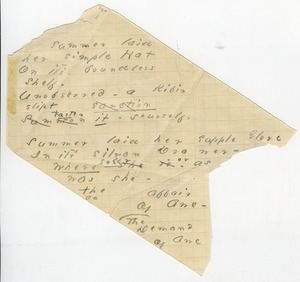 Summer laid
her simple Hat
On its boundless
Shelf -
Unobserved - a Ribin
slipt
fasten
it - yourself.
Summer laid her supple Glove
In its silvan Drawer -
Where she or as
was she -
the Affair
of Awe -
The
Demand
of Awe